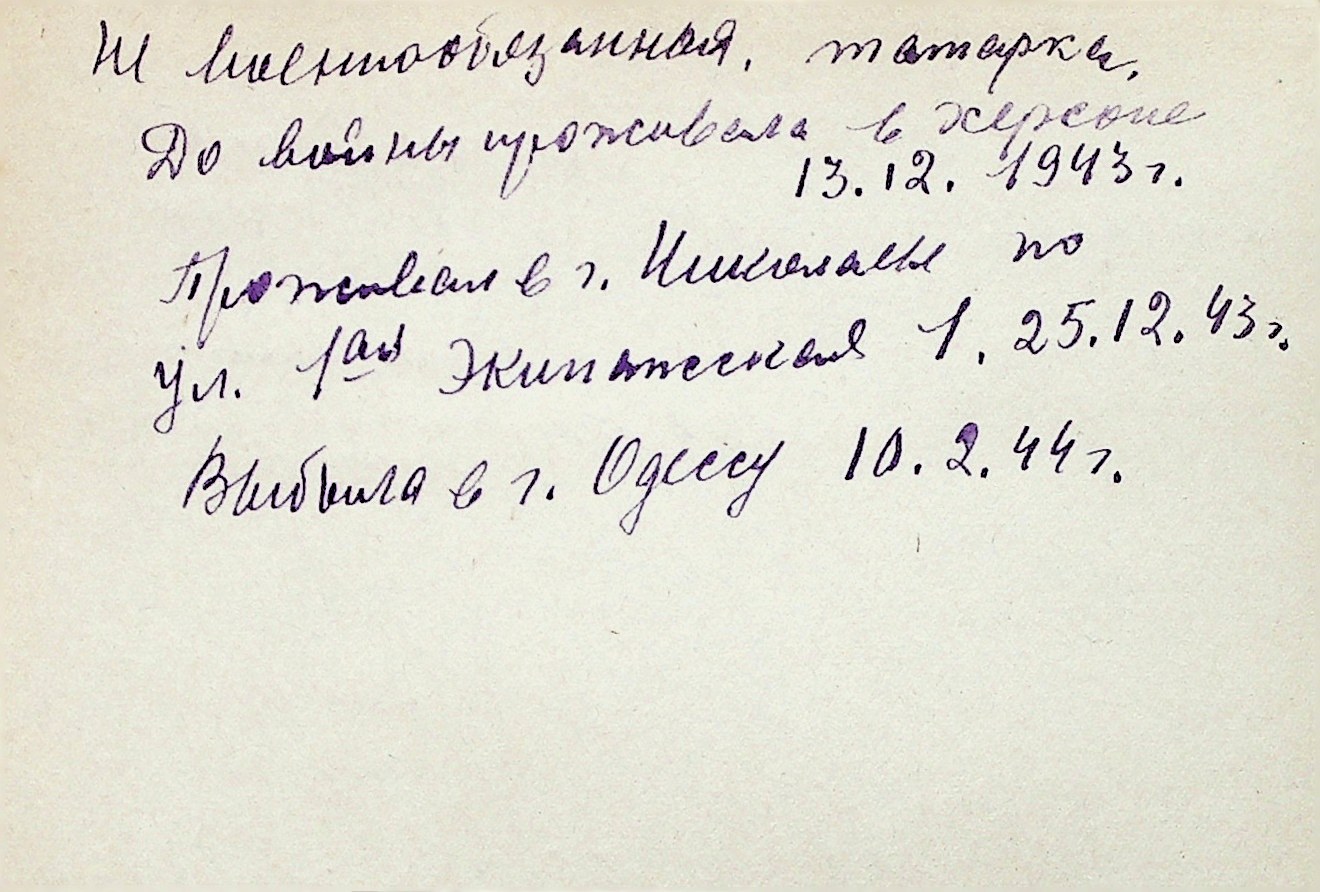 Не военнообязанная, татарка,
До войны проживала в Херсоне
13.12. 1943 г.
Проживал в г. Николаеве по
ул. 1ая Экипажеская 1. 25.12.43 г.
Выбыла в г. Одессу 10.2.44 г.